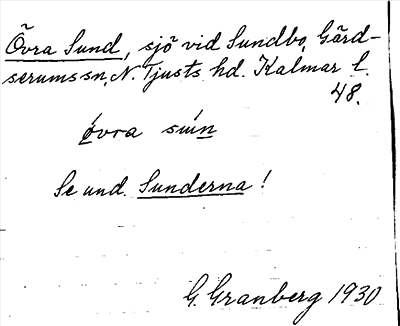 Övra Sund, sjö vid Sundbo, Gärd-
serums sn, N. Tjusts hd. Kalmar l.
48.
óvra sún
Se und. Sunderna!
G. Granberg 1930